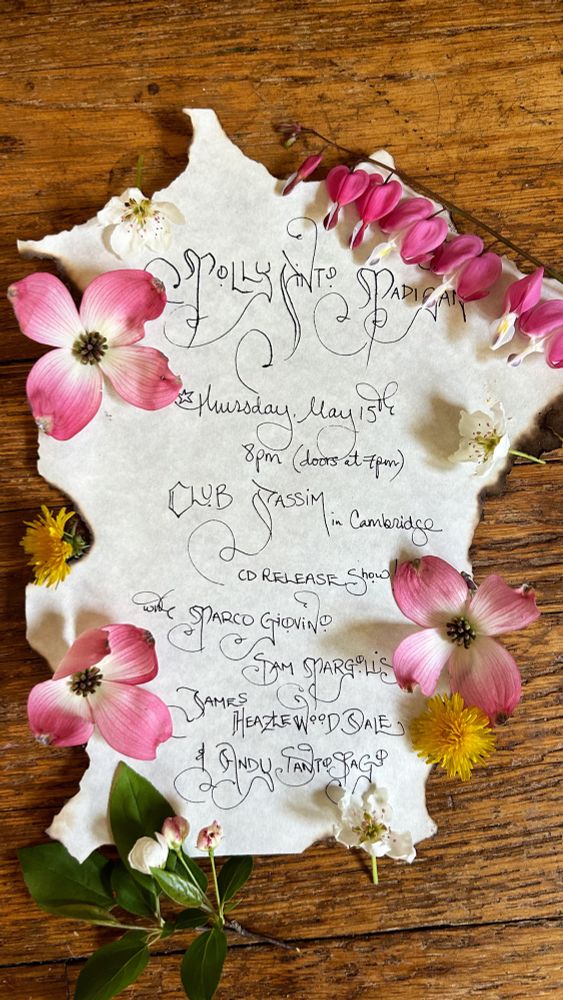 Molly Pinto Madigan
☆Thursday, May 15th
8pm (doors at 7pm)
Club Passim in Cambridge
CD RELEASE Show!
with MARCO GIOVINO
SAM MARGOLIS
JAMES
HEAZLEWOOD DALE
& ANDY SANTOSPAGO